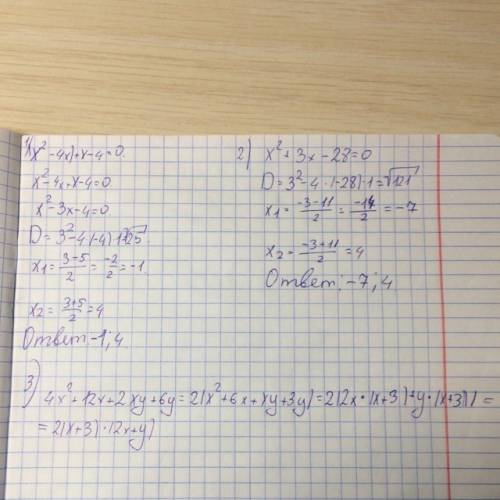 1)(x²-4x)+x-4=0.
x²-4x+x-4=0.
x²-3x-4=0
D=3²-4·(-4)·1=√25
x1=3-5/2=-2/2=-1
x2=3+5/2=4
Ответ:-1;4
2) x²+3x-28=0
D=3²-4·(-28)·1=√121
x1=-3-11/2=-14/2=-7
x2=-3+11/2=4
Ответ:-7;4
3)
4x²+12x+2xy+6y=2(x²+6x+xy+3y)=2(2x·(x+3)+y·(x+3))=
=2(x+3)·(2x+y)